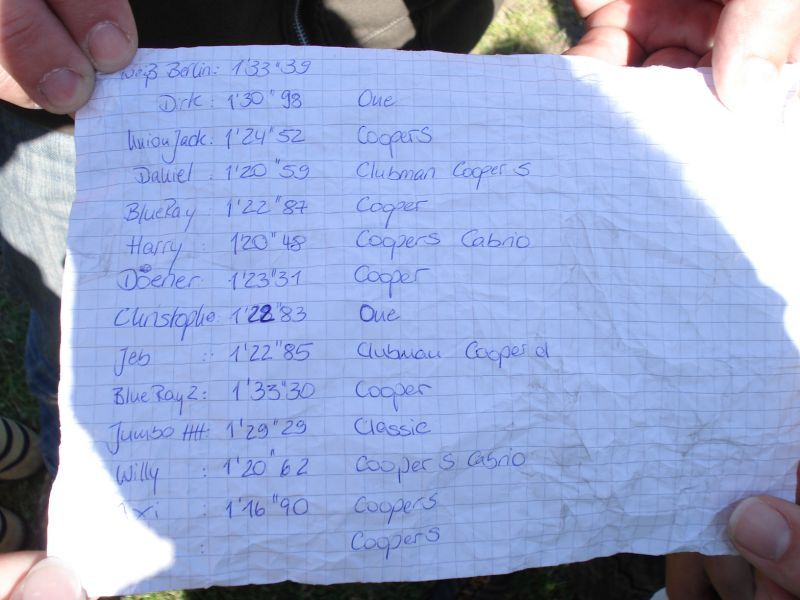 Weiß Berlin: 1'33"39
Dirk: 1'30"98 One
Union Jack: 1'24"52 CooperS
Daniel: 1'20"59 Clubman Cooper S
BlueRay: 1'22"87 Cooper
Harry: 1'20"48 CooperS Cabrio
Döener: 1'23"31 Cooper
Christoph: 1'22"83 One
Jeb: 1'22"85 Clubman Cooper d
BlueRay2: 1'33"30 Cooper
Jumbo: 1'29"29 Classic
Willy: 1'20"62 Cooper S Cabrio
1'16"90 CooperS
: CooperS